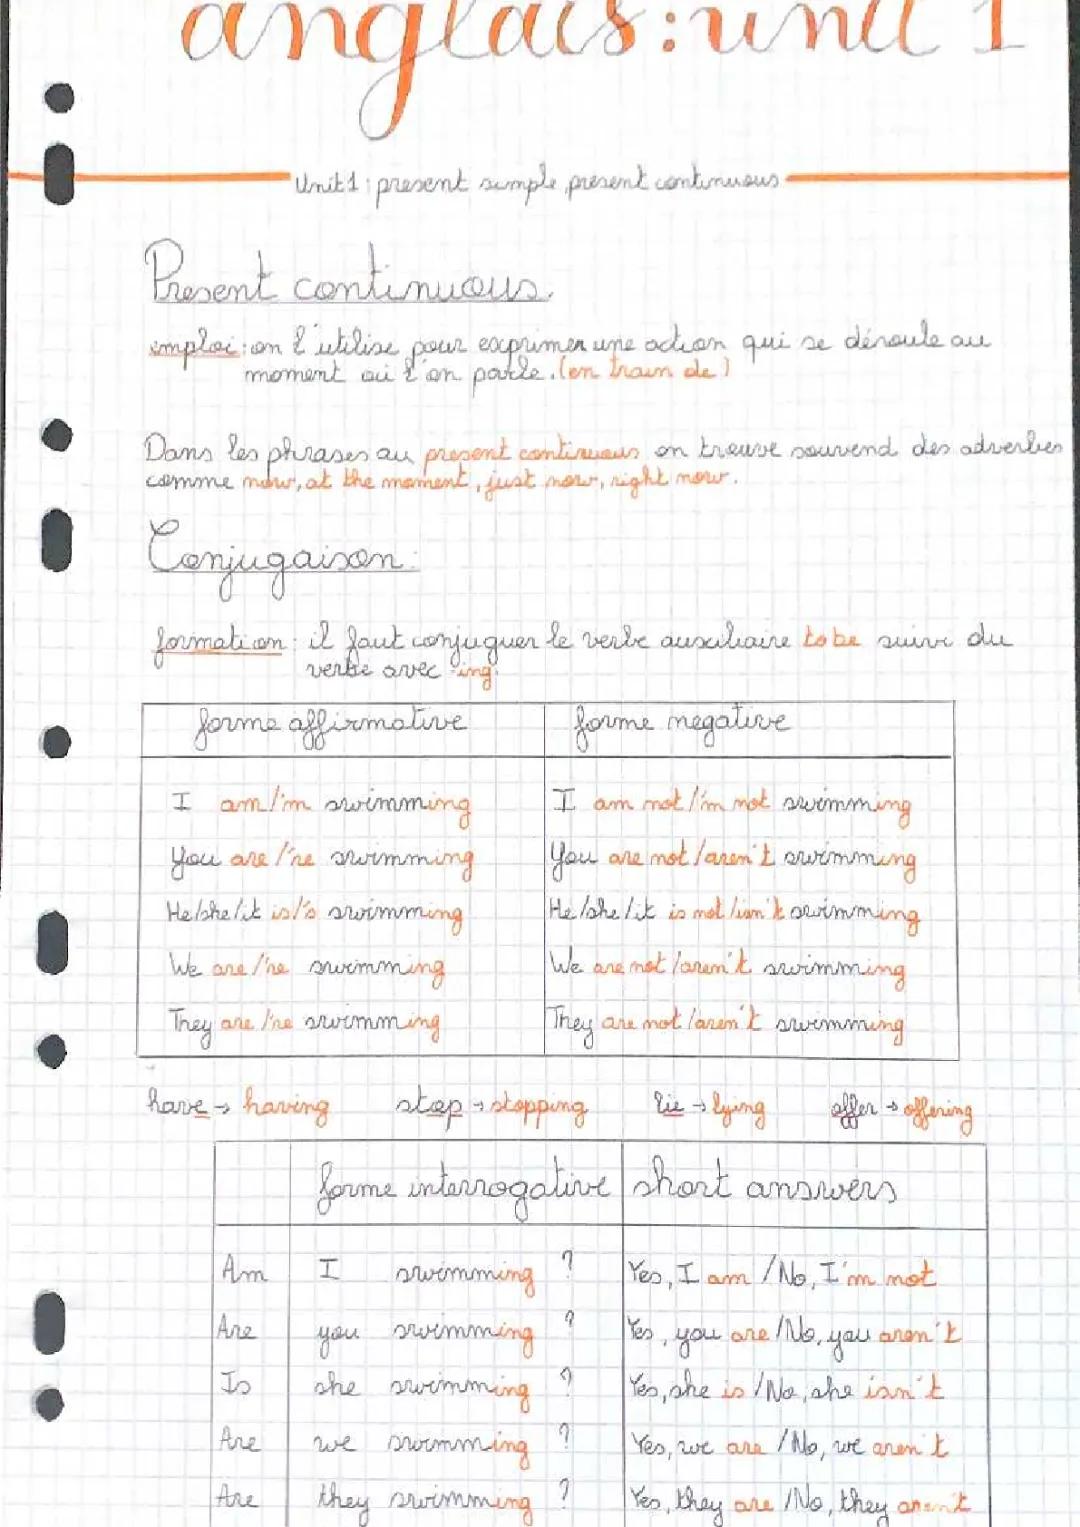 anglais: unit 1
Unit 1 : present simple, present continuous
Present continuous.
emploi : on l'utilise pour exprimer une action qui se déroule au
moment où l'on parle. (en train de)
Dans les phrases au present continuous on trouve souvend des adverbes
comme now, at the moment, just now, right now.
Conjugaison :
formation : il faut conjuguer le verbe auxiliaire to be suivi du
verbe avec -ing.
forme affirmative forme negative
I am/'m swimming I am not/'m not swimming
You are/'re swimming You are not/aren't swimming
He/she/it is/'s swimming He/she/it is not/isn't swimming
We are/'re swimming We are not/aren't swimming
They are/'re swimming They are not/aren't swimming
have → having stop → stopping lie → lying offer → offering
forme interrogative short answers
Am I swimming ? Yes, I am / No, I'm not
Are you swimming ? Yes, you are / No, you aren't
Is she swimming ? Yes, she is / No, she isn't
Are we swimming ? Yes, we are / No, we aren't
Are they swimming ? Yes, they are / No, they aren't